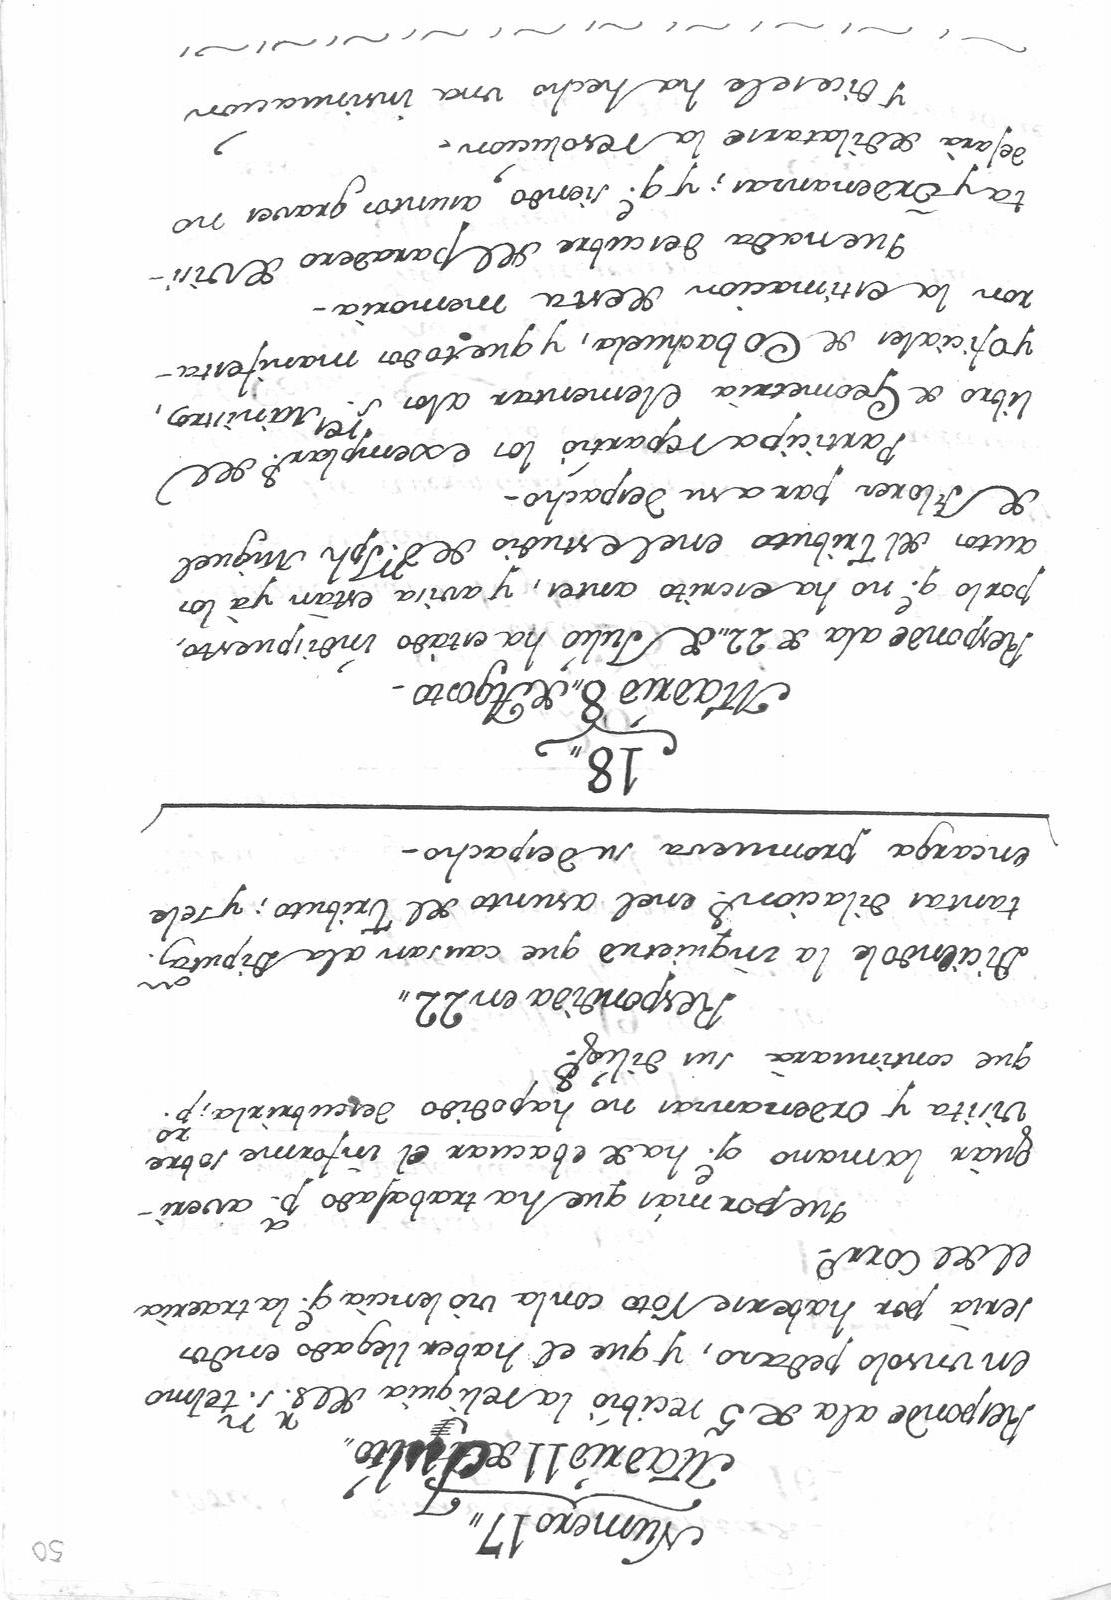 50
Numero 17,,
Madrid 11 de Julio,,
Responde ala de 5 recibió la reliquia de S.n S.n telmo
en un solo pedazo, y que el haber llegado en dos
seria por haberse roto con la violencia q.e la traeria
el del Corr.o
Que por más que ha trabajado p.a averi-
guàr la mano q.e ha de ebacuar el informe sobre
visita y ordenanzas no ha podido descubrirla; p.ro
que continuarà sus dilig.s
Respondida en 22,,
Diciendole la inquietud que causan ala Diputa.on
tantas dilacion.s en el asunto del Tributo; y se le
encarga promueva su despacho-
18,,
Madrid 8,, de Agosto-
Responde ala de 22,, de Julio ha estado indispuesto,
por lo q.e no ha escrito antes, y avisa están yà los
autos del Tributo en el estudio de D.n Jph Miguel
de Flores para su despacho-
Participa repartió los exemplar.s del
libro de Geometria Elementar alos S.res Ministros,
y Oficiales de Cobachuela, y que todos manifesta-
ron la estimacion de esta memoria-
Que nada descubre del paradero de Visi-
ta y Ordenanzas; y q.e siendo asuntos graves no
dejarà de dilatarse la resolucion-
Y dice se le ha hecho una insinuacion